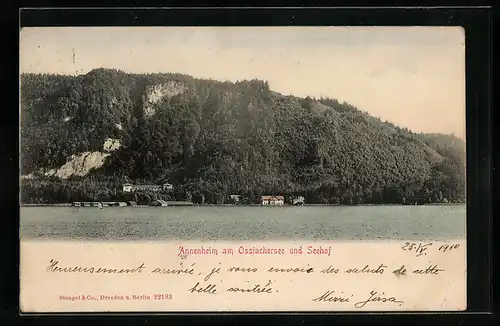 Annenheim am Ossiachersee und Seehof
25/V 1910
Heureusement arrivé, je vous envoie des saluts de cette
belle contrée.
Mizzi
Stengel & Co., Dresden u. Berlin 22193